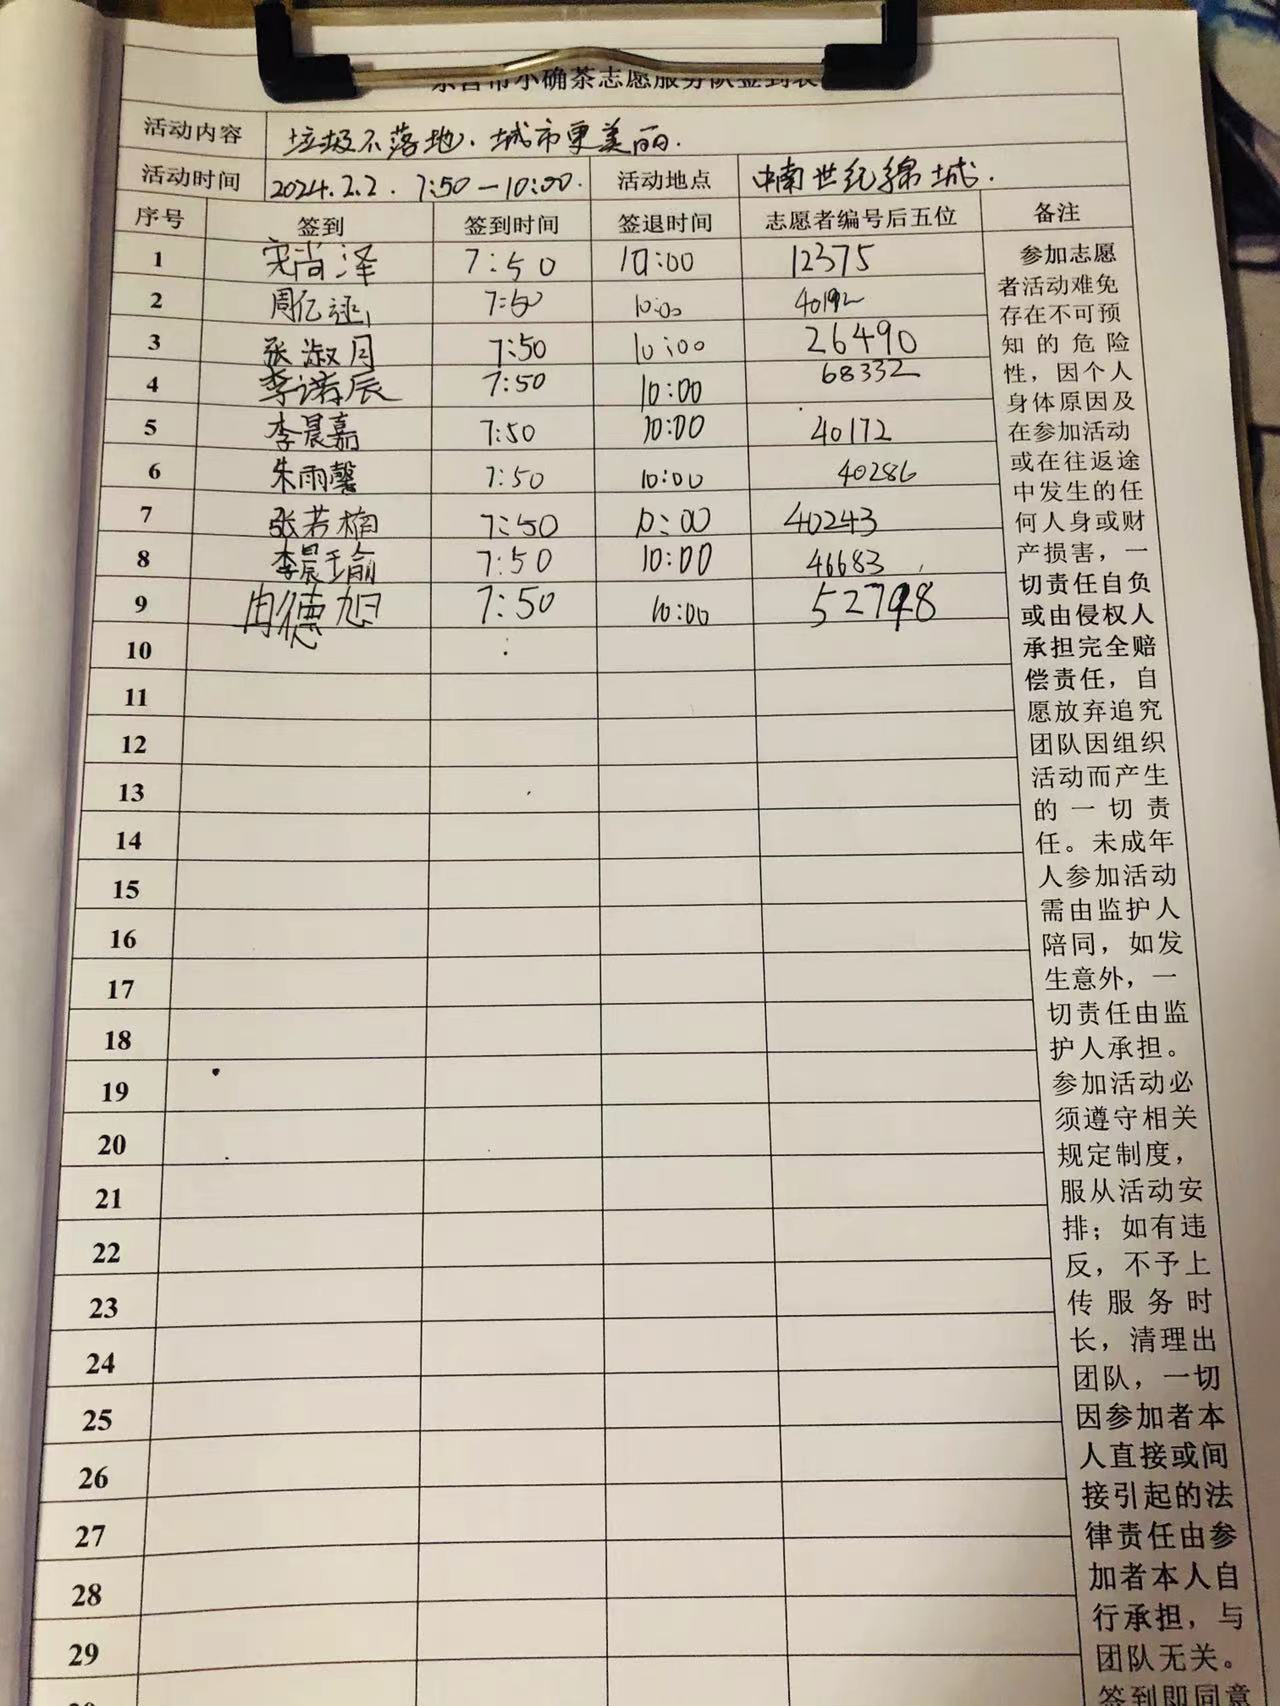 东营市小确茶志愿服务队签到表
活动内容 垃圾不落地.城市更美丽.
活动时间 2024.2.2. 7:50—10:00. 活动地点 中南世纪锦城.
序号 签到 签到时间 签退时间 志愿者编号后五位 备注
1 宋尚泽 7:50 10:00 12375
2 周亿 7:50 10:00 40192
3 张淑月 7:50 10:00 26490
4 李诺辰 7:50 10:00 68332
5 李晨嘉 7:50 10:00 40172
6 朱雨馨 7:50 10:00 40286
7 张若楠 7:50 10:00 40243
8 李晨瑜 7:50 10:00 46683
9 冉德旭 7:50 10:00 52798
10
11
12
13
14
15
16
17
18
19
20
21
22
23
24
25
26
27
28
29
参加志愿
者活动难免
存在不可预
知的危险
性，因个人
身体原因及
在参加活动
或在往返途
中发生的任
何人身或财
产损害，一
切责任自负
或由侵权人
承担完全赔
偿责任，自
愿放弃追究
团队因组织
活动而产生
的一切责
任。未成年
人参加活动
需由监护人
陪同，如发
生意外，一
切责任由监
护人承担。
参加活动必
须遵守相关
规定制度，
服从活动安
排；如有违
反，不予上
传服务时
长，清理出
团队，一切
因参加者本
人直接或间
接引起的法
律责任由参
加者本人自
行承担，与
团队无关。
签到即同意